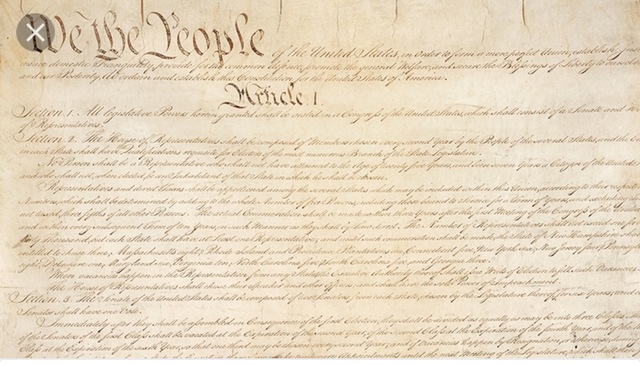 We the People of the United States, in order to form a more perfect Union, establish
insure domestic Tranquility, provide for the common defence, promote the general Welfare, and secure the Blessings of Liberty to
and our Posterity, do ordain and establish this Constitution for the United States of America.
Article. I.
Section. 1. All legislative Powers herein granted shall be vested in a Congress of the United States, which shall consist of a Senate and
of Representatives.
Section. 2. The House of Representatives shall be composed of Members chosen every second Year by the People of the several States, and the
in each State shall have Qualifications requisite for Electors of the most numerous Branch of the State Legislature.
No Person shall be a Representative who shall not have attained to the Age of twenty five Years, and been seven Years a Citizen of the United
and who shall not, when elected, be an Inhabitant of that State in which he shall be chosen.
Representatives and direct Taxes shall be apportioned among the several States which may be included within this Union, according to their
Numbers, which shall be determined by adding to the whole Number of free Persons, including those bound to Service for a Term of Years, and excluding
not taxed, three fifths of all other Persons. The actual Enumeration shall be made within three Years after the first Meeting of the Congress of the
and within every subsequent Term of ten Years, in such Manner as they shall by Law direct. The Number of Representatives shall not exceed
thirty Thousand, but each State shall have at Least one Representative; and until such enumeration
entitled to chuse three, Massachusetts eight, Rhode Island and Providence Plantations one, Connecticut five, New York six, New Jersey four,
eight, Delaware one, Maryland six, Virginia ten, North Carolina five, South Carolina five, and Georgia three.
When vacancies happen in the Representation from any State, the Executive Authority thereof shall issue Writs of Election to fill such Vacancies.
The House of Representatives shall chuse their Speaker and other Officers; and shall have the sole Power of Impeachment.
Section. 3. The Senate of the United States shall be composed of two Senators from each State, chosen by the Legislature thereof, for six Years; and
Senator shall have one Vote.
Immediately after they shall be assembled in Consequence of the first Election, they shall be divided as equally as may be into three Classes.
of the Senators of the first Class shall be vacated at the Expiration of the second Year, of the second Class at the Expiration of the fourth Year, and of the
Class at the Expiration of the sixth Year, so that one third may be chosen every second Year; and if Vacancies happen by Resignation, or otherwise,
Appointments until the next Meeting of the Legislature, which shall